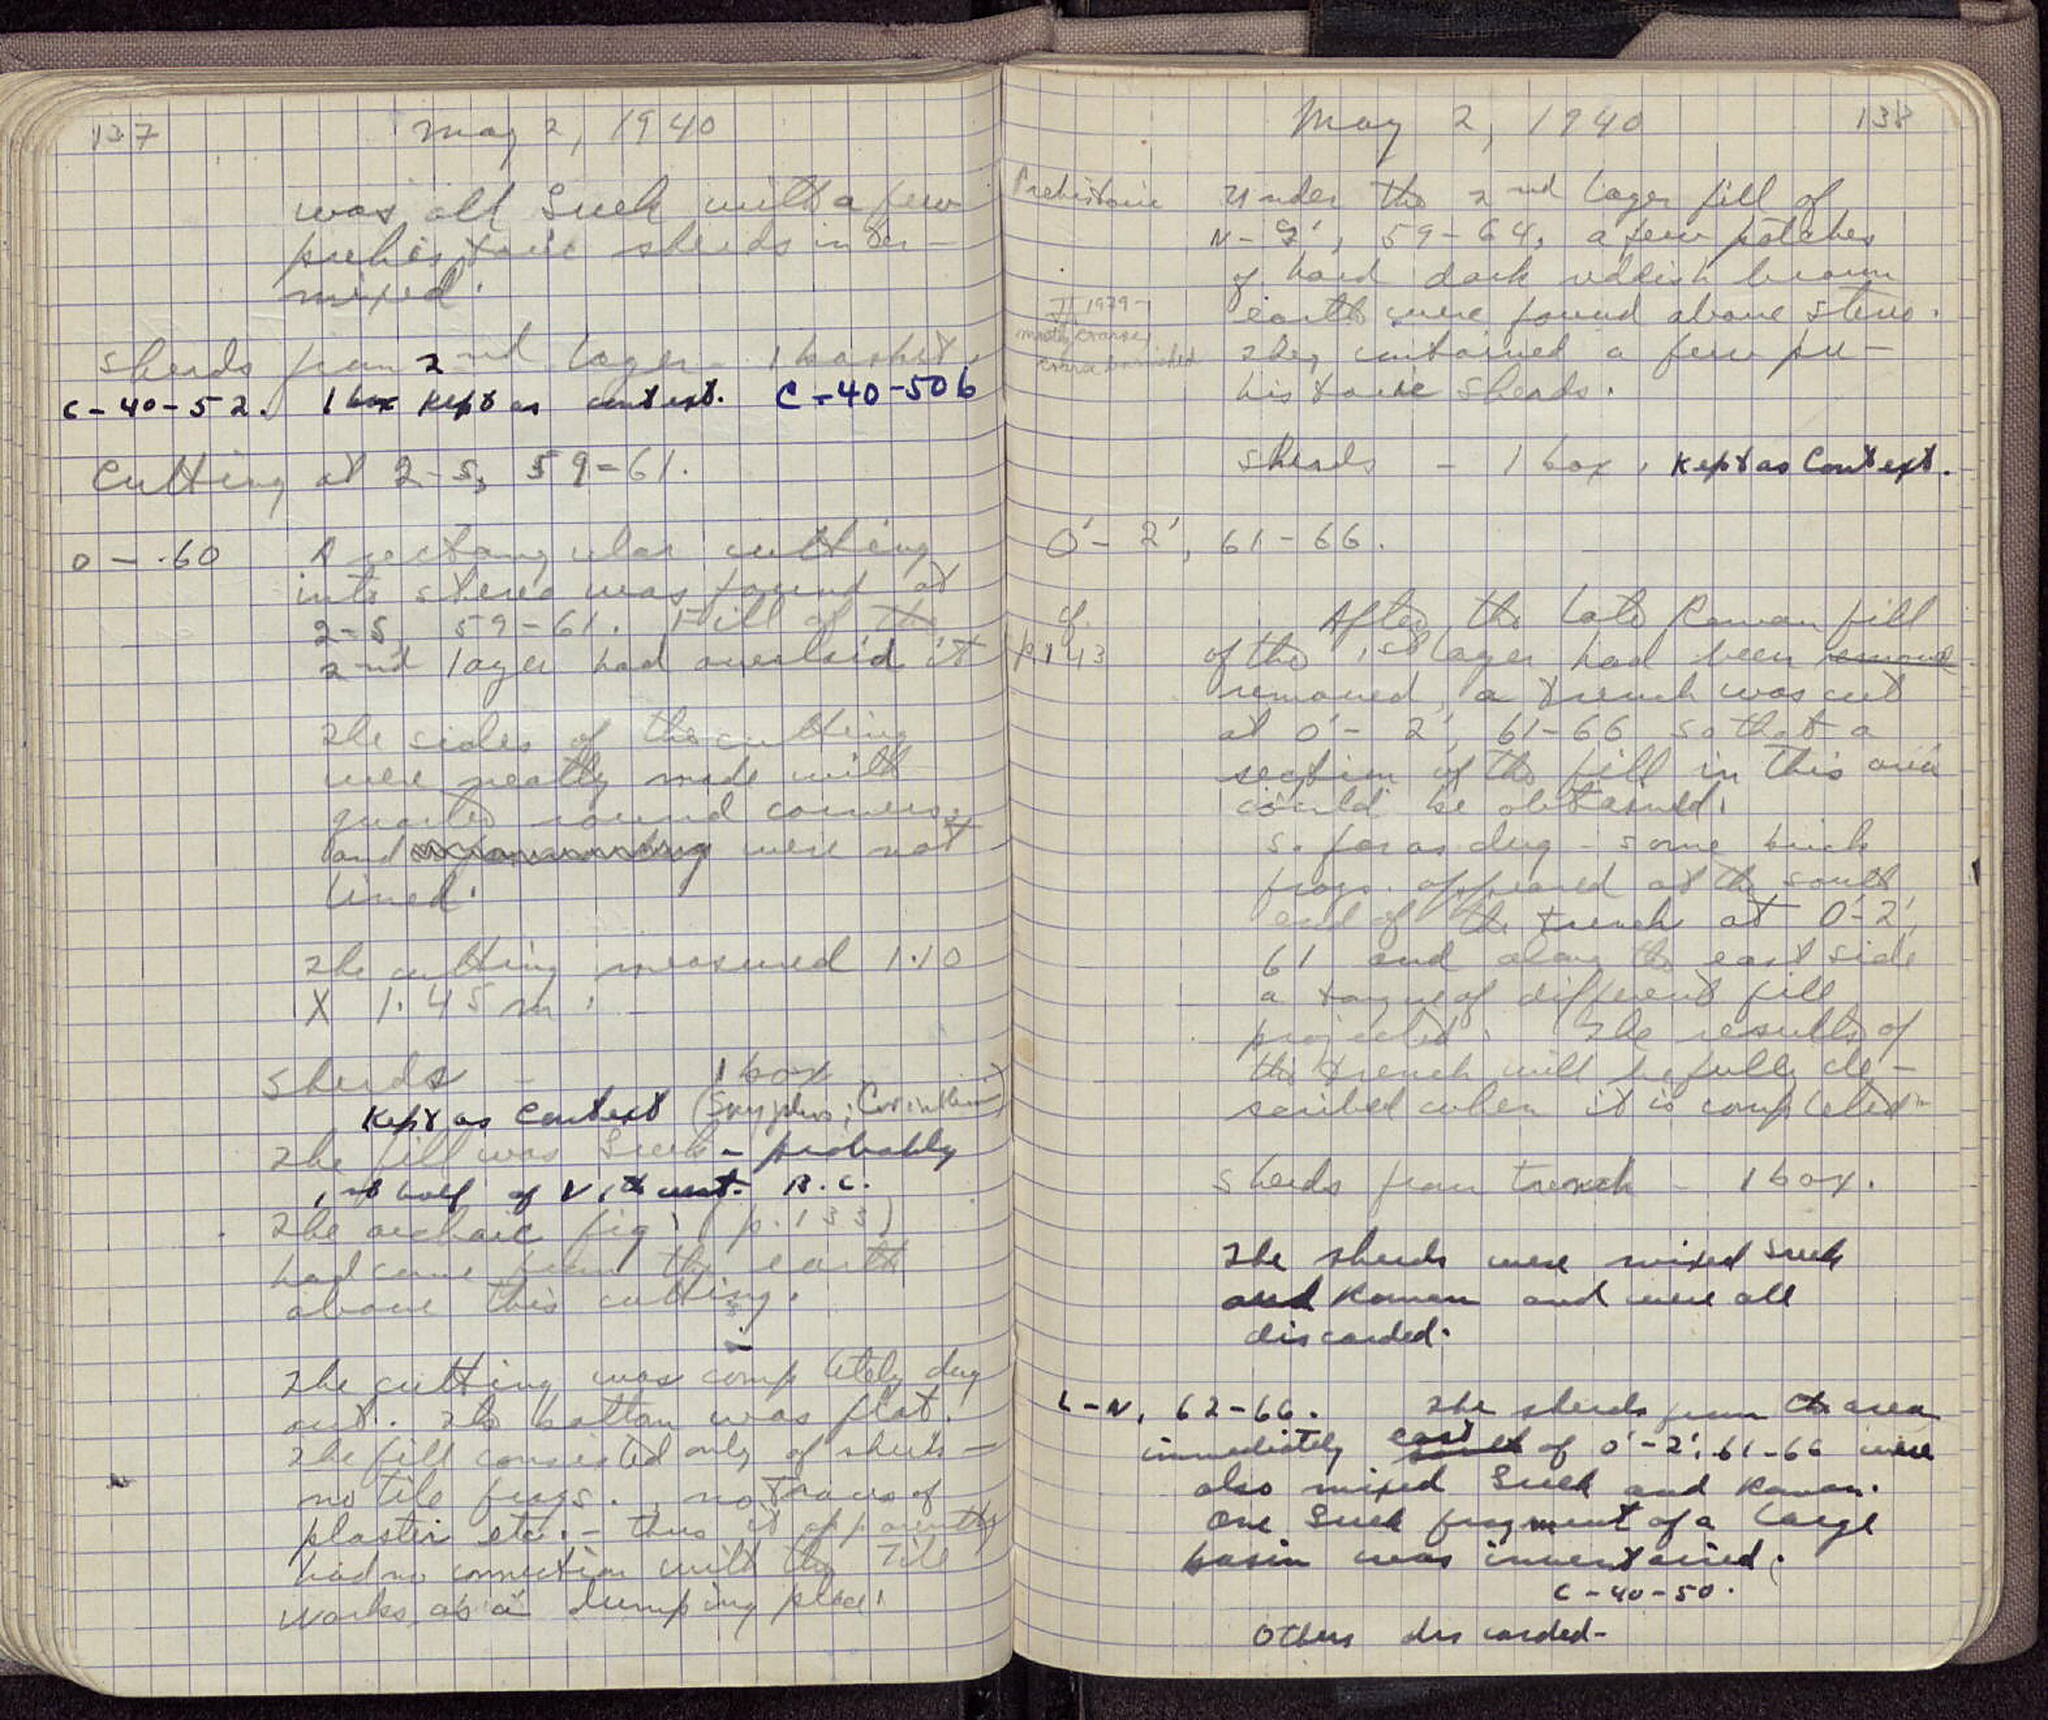 137
May 2, 1940
was all Greek with a few
prehistoric sherds inter-
mixed.
Sherds from 2nd layer - 1 basket.
C-40-52. 1 box kept as context. C-40-506
Cutting at 2-5, 59-61.
0 - .60 A rectangular cutting
into stereo was found at
2-5, 59-61. Fill of the
2nd layer had overlaid it
The sides of the cutting
were neatly made with
quarter round corners
and were not
lined.
The cutting measured 1.10
X 1.45 m.
Sherds - 1 box
Kept as Context (Skyphos; Corinthian)
The fill was Greek - probably
1st half of VI, th cent. B.C.
The archaic fig. (p. 133)
had come from the earth
above this cutting.
The cutting was completely dug
out. The bottom was flat.
The fill consisted only of sherds -
no tile frags., no traces of
plaster etc. - thus it apparently
had no connection with the Tile
Works as a dumping place.
May 2, 1940
138
Prehistoric Under the 2nd layer fill of
N-2', 59-64, a few patches
of hard dark reddish brown
earth were found above stereo.
They contained a few pre-
historic sherds.
1939-
mostly coarse,
burnished
Sherds - 1 box, Kept as Context.
0'-2', 61-66.
cf. p. 143
After the late Roman fill
of the 1st layer had been remove
removed, a trench was cut
at 0'-2', 61-66 so that a
section of the fill in this area
could be obtained.
So far as dug - some brick
frags. appeared at the south
end of the trench at 0'-2',
61 and along the east side
a tongue of different fill
projected. The results of
the trench will be fully de-
scribed when it is completed-
Sherds from trench - 1 box.
The sherds were mixed Greek
and Roman and were all
discarded.
L-N, 62-66. The sherds from the area
immediately south east of 0'-2', 61-66 were
also mixed Greek and Roman.
One Greek fragment of a large
basin was inventoried.
C-40-50.
Others discarded-